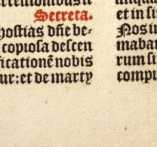 Secreta.
hostias dñe be-
copiosa descen
ficationē nobis
ur: et de marty
et in si
Nos iu
maban
rum si
compu